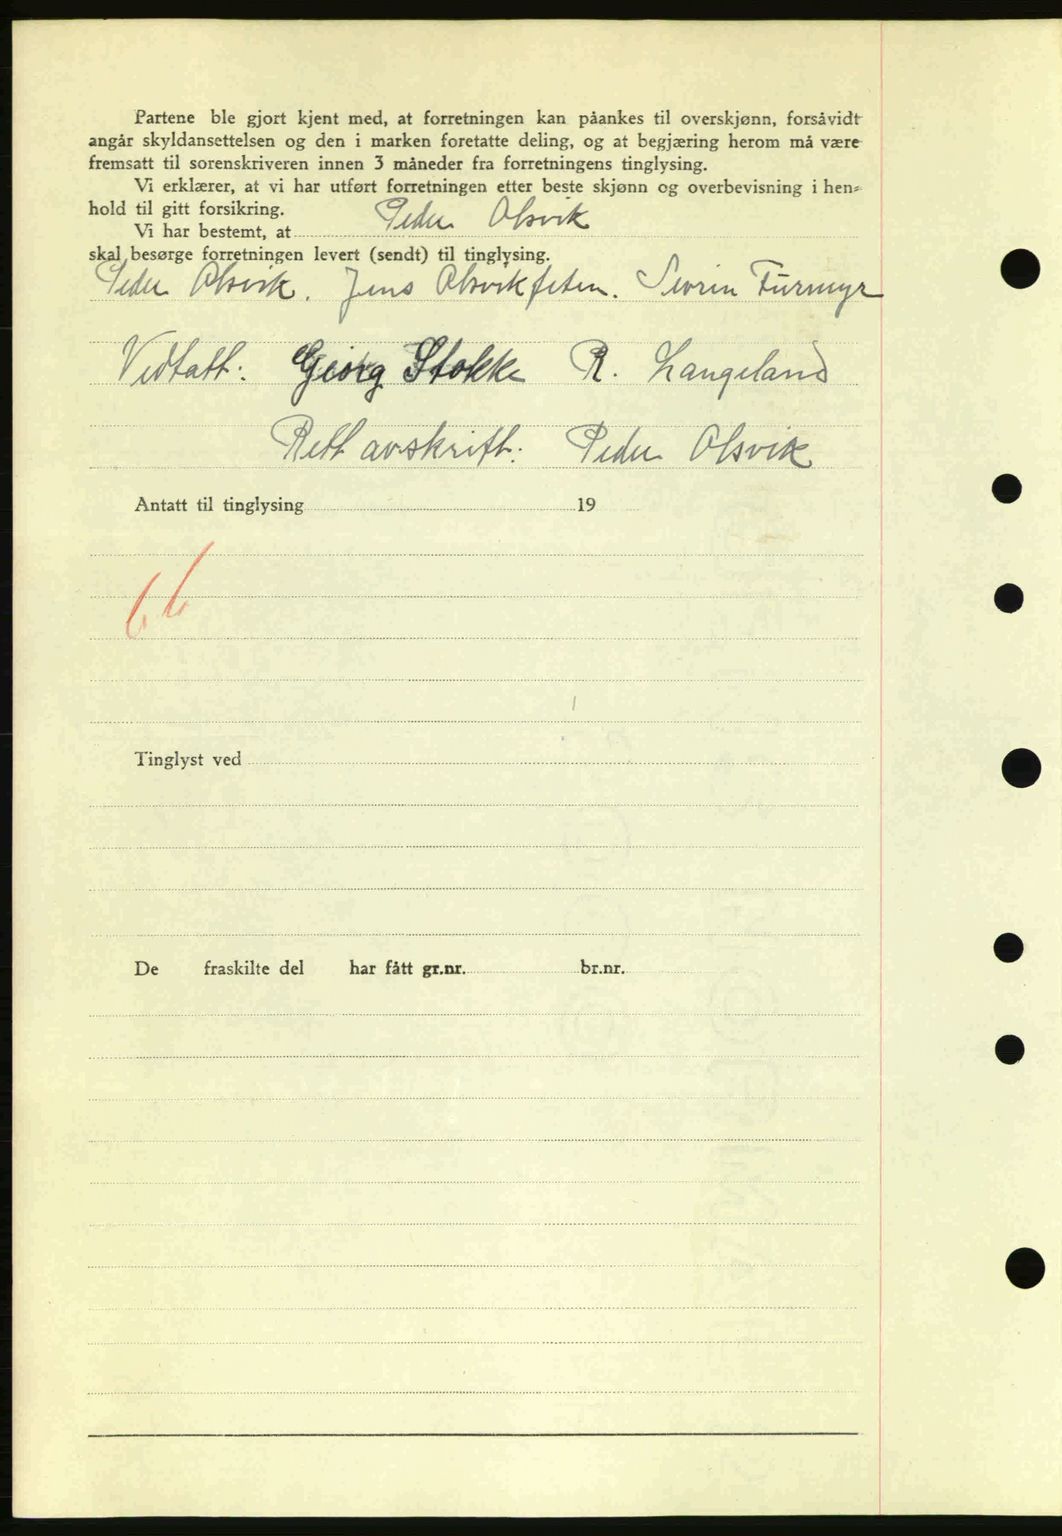 Partene ble gjort kjent med, at forretningen kan påankes til overskjønn, forsåvidt
angår skyldansettelsen og den i marken foretatte deling, og at begjæring herom må være
fremsatt til sorenskriveren innen 3 måneder fra forretningens tinglysing.
Vi erklærer, at vi har utført forretningen etter beste skjønn og overbevisning i hen-
hold til gitt forsikring.
Vi har bestemt, at Peder Alsvik
skal besørge forretningen levert (sendt) til tinglysing.
Peder Alsvik. Jens Alsvikfeten. Sevrin Furmyr
Vedtatt: Georg Stokke R. Langeland
Rett avskrift: Peder Alsvik
Antatt til tinglysing 19
66
Tinglyst ved
De fraskilte del har fått gr.nr. br.nr.